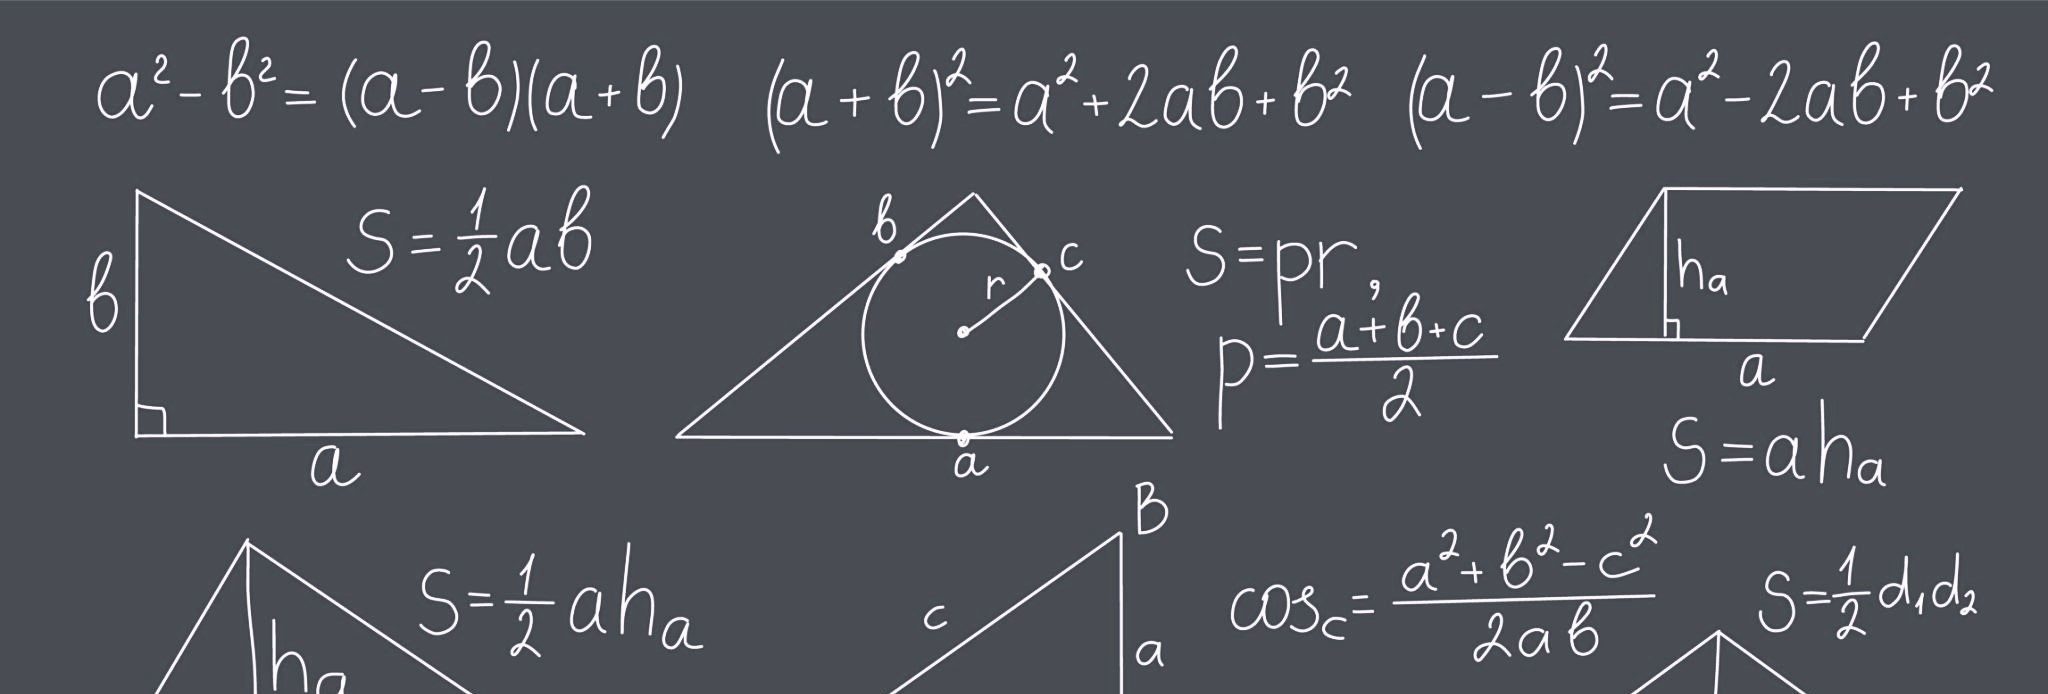 a² - b² = (a - b)(a + b) (a + b)² = a² + 2ab + b² (a - b)² = a² - 2ab + b²
b
S = 1/2 ab
a
b
c
r
a
S = pr,
p = (a + b + c)/2
hₐ
a
S = ahₐ
hₐ
S = 1/2 ahₐ
B
c
a
cos_c = (a² + b² - c²)/2ab
S = 1/2 d₁d₂